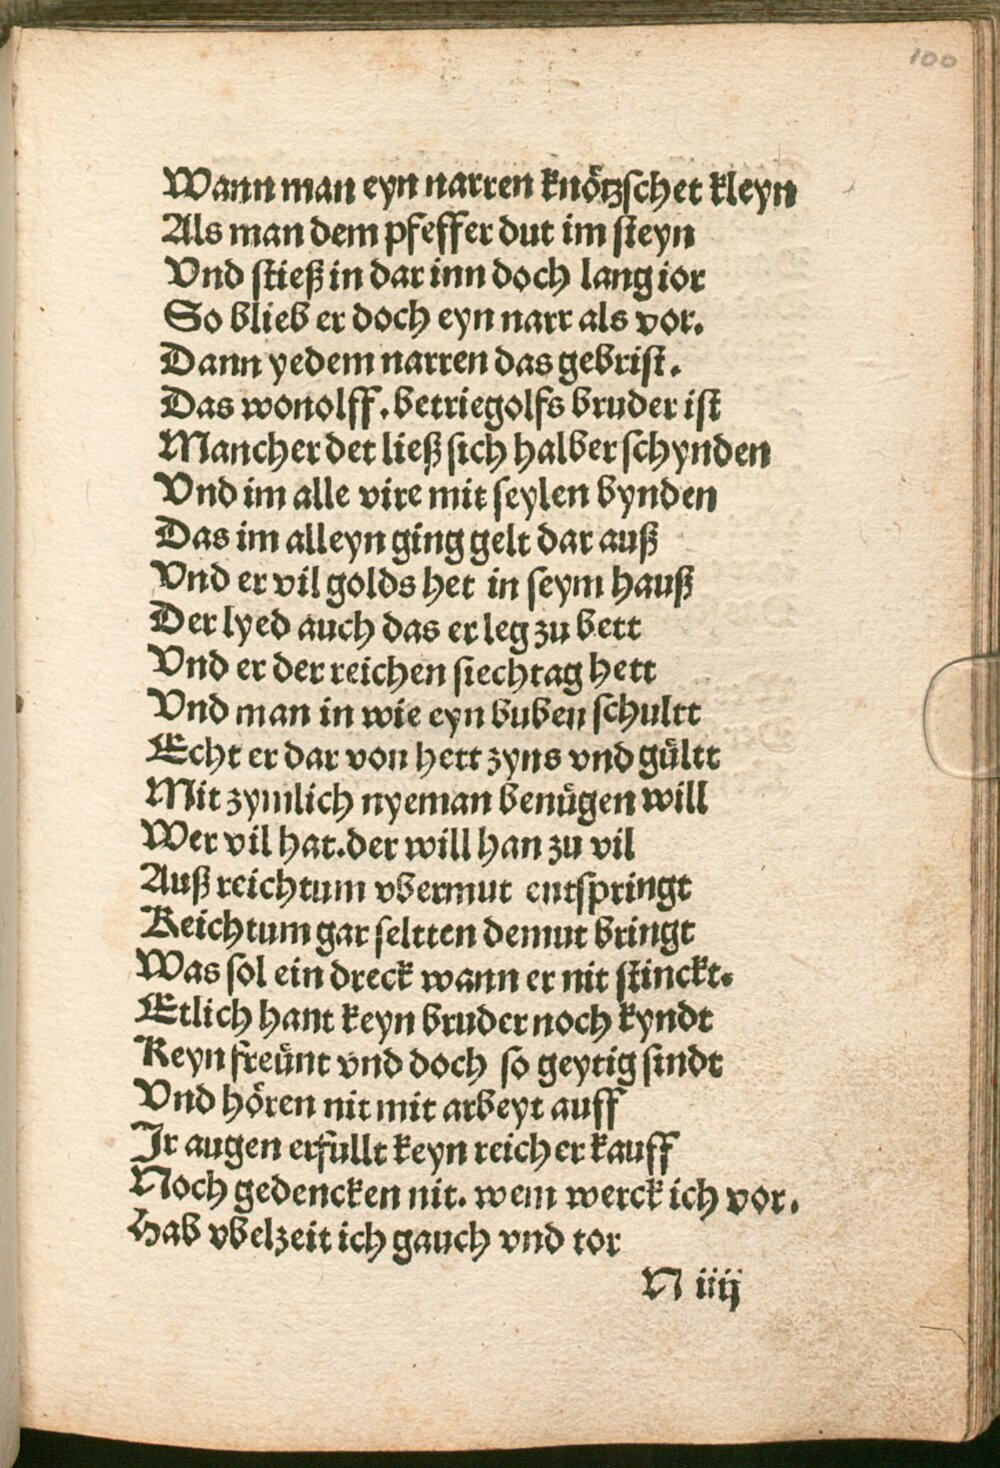 100
Wann man eyn narren knötzschet kleyn
Als man dem pfeffer dut im steyn
Vnd stieß in dar inn doch lang ior
So blieb er doch eyn narr als vor.
Dann yedem narren das gebrist.
Das wonolff. betriegolfs bruder ist
Mancher det ließ sich halber schynden
Vnd im alle vire mit seylen bynden
Das im alleyn ging gelt dar auß
Vnd er vil golds het in seym hauß
Der lyed auch das er leg zu bett
Vnd er der reichen siechtag hett
Vnd man in wie eyn buben schultt
Echt er dar von hett zyns vnd gültt
Mit zymlich nyeman benügen will
Wer vil hat. der will han zu vil
Auß reichtum vbermut entspringt
Reichtum gar seltten demut bringt
Was sol ein dreck wann er nit stinckt.
Etlich hant keyn bruder noch kyndt
Keyn freünt vnd doch so geytig sindt
Vnd hören nit mit arbeyt auff
Jr augen erfullt keyn reicher kauff
Noch gedencken nit. wem werck ich vor.
Hab vbelzeit ich gauch vnd tor
N iiij